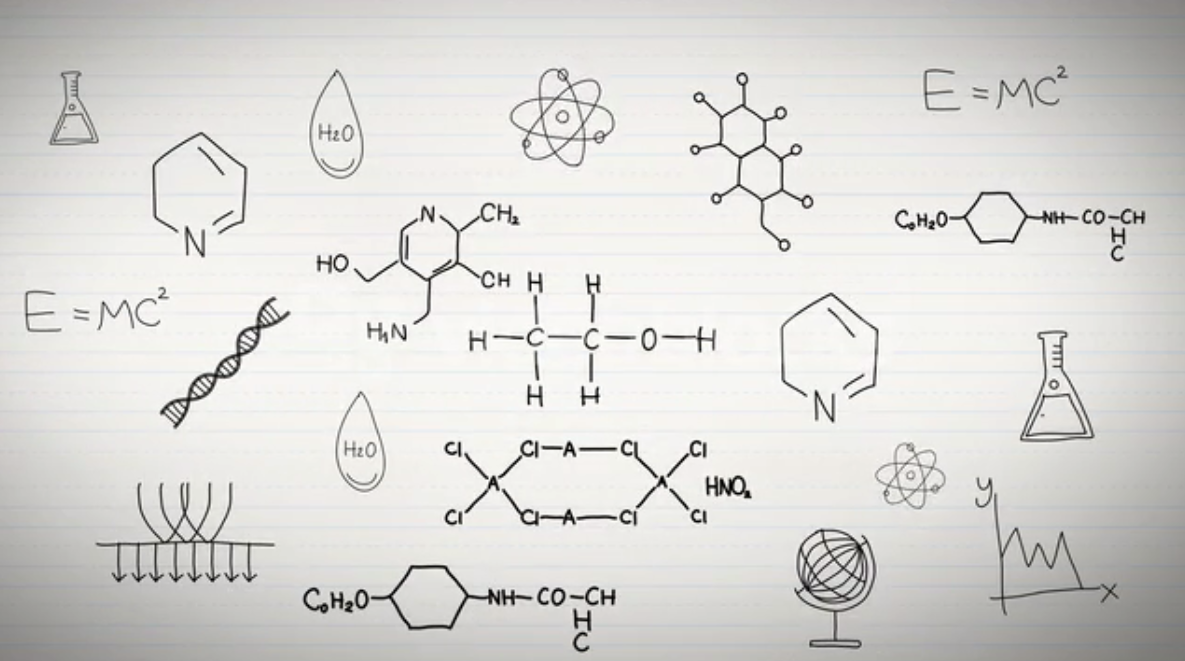 H₂O
E = MC²
N
N
CH₂
HO
CH
H₁N
C₀H₂O
NH
CO
CH
H
C
E = MC²
H
H
H
C
C
O
H
H
H
N
H₂O
Cl
Cl
A
Cl
Cl
A
A
HNO₂
Cl
Cl
A
Cl
Cl
y
x
C₀H₂O
NH
CO
CH
H
C